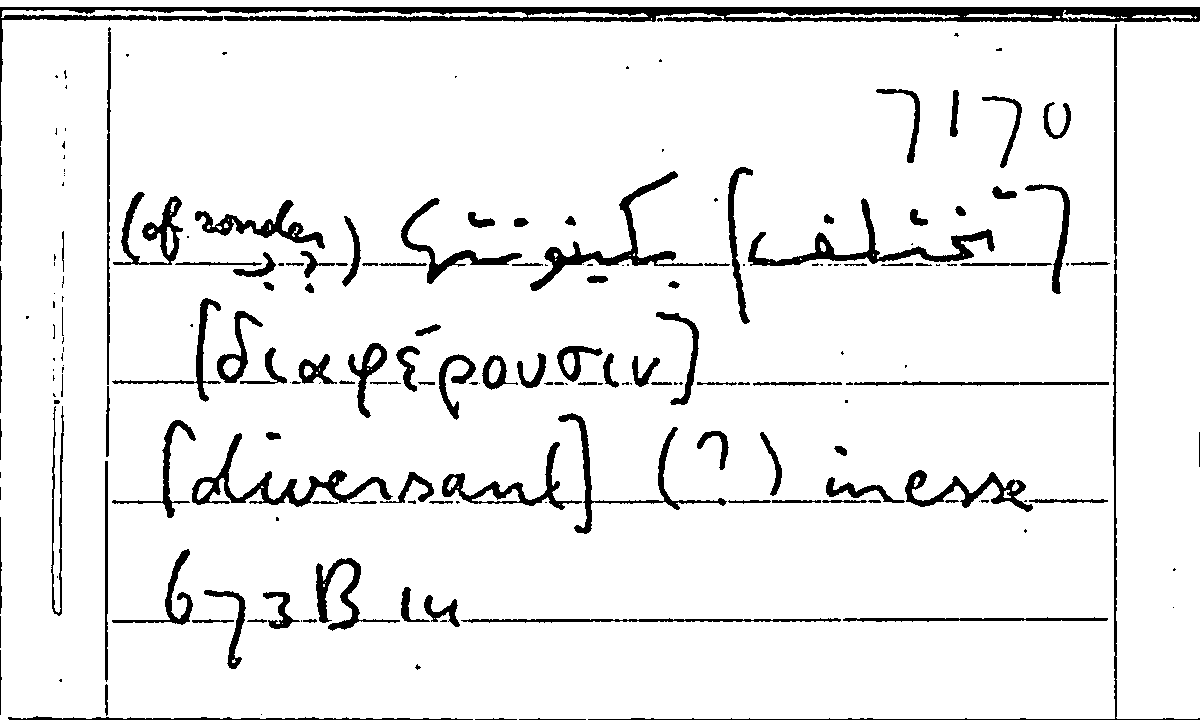 7170
[تختلف] بكينونتها (of zonder ب؟)
[διαφέρουσιν]
[diversant] (?) inesse
673B 14